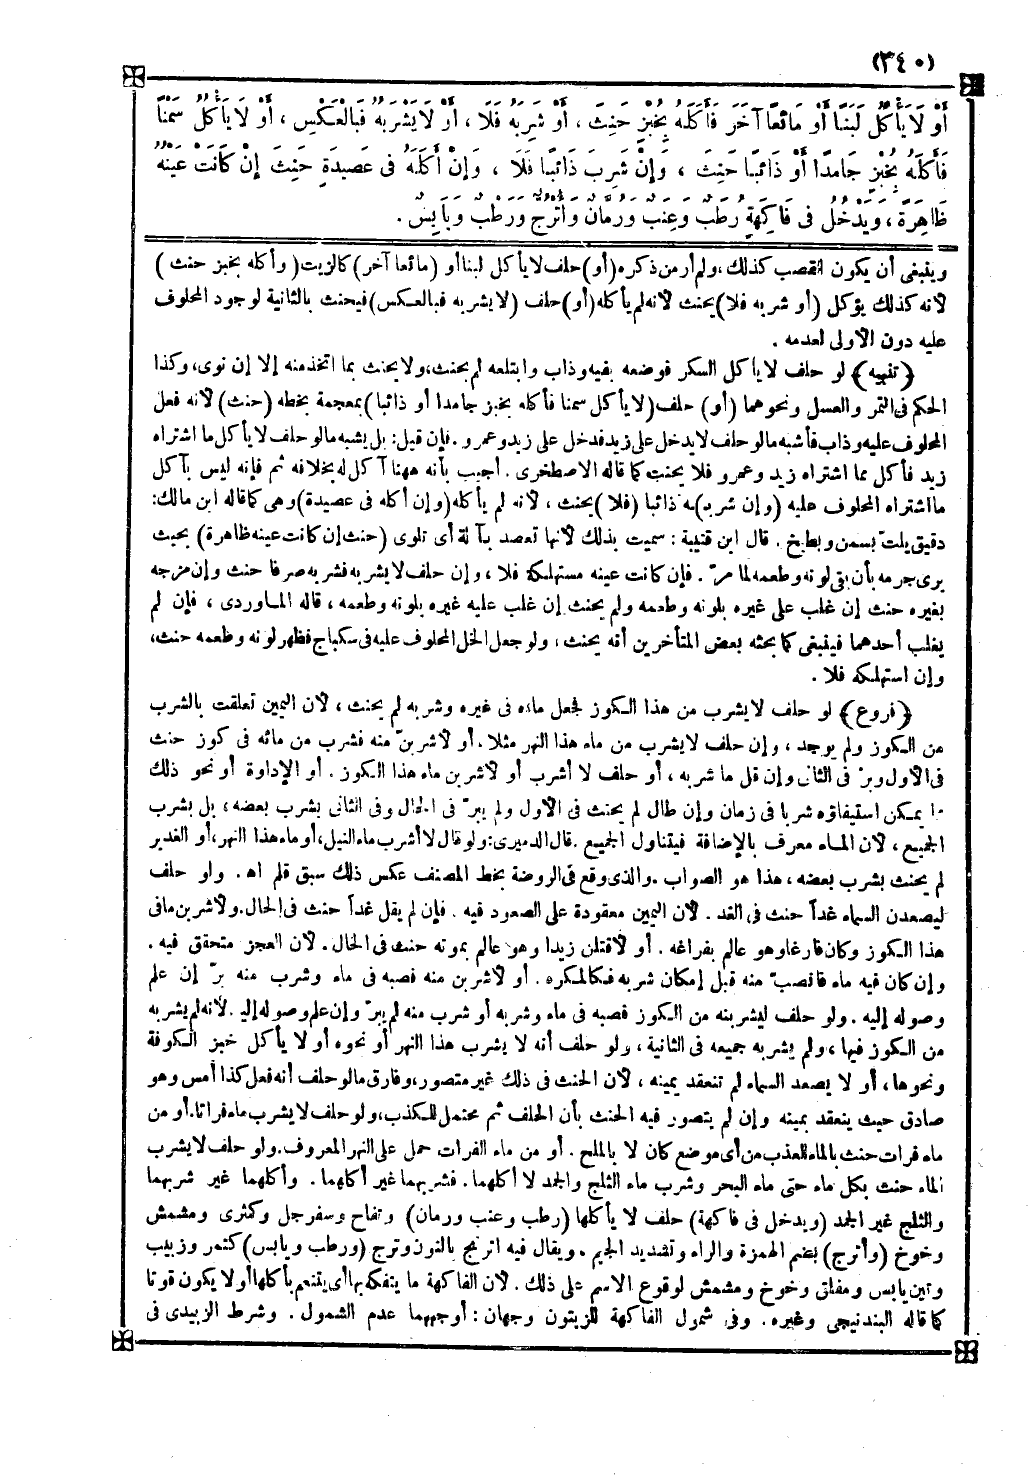 (٣٤٠)
أَوْ لَا يَأْكُلُ لَبَنًا أَوْ مَائِعًا آخَرَ فَأَكَلَهُ بِخُبْزٍ حَنِثَ ، أَوْ شَرِبَهُ فَلَا ، أَوْ لَا يَشْرَبُهُ فَبِالْعَكْسِ ، أَوْ لَا يَأْكُلُ سَمْنًا
فَأَكَلَهُ بِخُبْزٍ جَامِدًا أَوْ ذَائِبًا حَنِثَ ، وَإِنْ شَرِبَ ذَائِبًا فَلَا ، وَإِنْ أَكَلَهُ فِى عَصِيدَةٍ حَنِثَ إِنْ كَانَتْ عَيْنُهُ
ظَاهِرَةً ، وَيَدْخُلُ فِى فَاكِهَةٍ رُطَبٌ وَعِنَبٌ وَرُمَّانٌ وَأُتْرُجٌّ وَرَطْبٌ وَيَابِسٌ .
وينبغى أن يكون القصب كذلك ، ولم أر من ذكره (أو) حلف لا يأكل لبنا أو (مائعا آخر) كالزيت (وأكله بخبز حنث )
لأنه كذلك يؤكل (أو شربه فلا) يحنث لأنه لم يأكله (أو) حلف (لا يشربه فبالعكس) فيحنث بالثانية لوجود المحلوف
عليه دون الأولى لعدمه .
﴿تنبيه﴾ لو حلف لا يأكل السكر فوضعه بفيه وذاب وابتلعه لم يحنث ، ولا يحنث بما اتخذ منه إلا إن نوى، وكذا
الحكم فى التمر والعسل ونحوهما (أو) حلف (لا يأكل سمنا فأكله بخبز جامدا أو ذائبا) بمعجمة بخطه (حنث) لأنه فعل
المحلوف عليه وذاب فأشبه ما لو حلف لا يدخل على زيد فدخل على زيد وعمرو . فإن قيل: بل يشبه ما لو حلف لا يأكل ما اشتراه
زيد فأكل مما اشتراه زيد وعمرو فلا يحنث كما قاله الاصطخرى . أجيب بأنه ههنا آكل له بخلافه ثم فإنه ليس بآكل
ما اشتراه المحلوف عليه (وإن شربه) ذائبا (فلا) يحنث ، لأنه لم يأكله (وإن أكله فى عصيدة) وهى كما قاله ابن مالك:
دقيق يلتّ بسمن ويطبخ . قال ابن قتيبة : سميت بذلك لأنها تعصد بآلة أى تلوى (حنث إن كانت عينه ظاهرة) بحيث
يرى جرمه بأن بقى لونه وطعمه لما مرّ . فإن كانت عينه مستهلكة فلا ، وإن حلف لا يشربه فشربه صرفا حنث وإن مزجه
بغيره حنث إن غلب على غيره بلونه وطعمه ولم يحنث إن غلب عليه غيره بلونه وطعمه ، قاله الماوردى ، فإن لم
يغلب أحدهما فينبغى كما بحثه بعض المتأخرين أنه يحنث ، ولو جعل الخل المحلوف عليه فى سكباج فظهر لونه وطعمه حنث،
وإن استهلكه فلا .
﴿فروع﴾ لو حلف لا يشرب من هذا الكوز فجعل ماءه فى غيره وشربه لم يحنث ، لأن اليمين تعلقت بالشرب
من الكوز ولم يوجد ، وإن حلف لا يشرب من ماء هذا النهر مثلا . أو لأشربنّ منه فشرب من مائه فى كوز حنث
فى الأول وبرّ فى الثانى وإن قل ما شربه ، أو حلف لا أشرب أو لأشربن ماء هذا الكوز . أو الإداوة أو نحو ذلك
مما يمكن استيفاؤه شربا فى زمان وإن طال لم يحنث فى الأول ولم يبرّ فى الحال وفى الثانى بشرب بعضه ، بل بشرب
الجميع ، لأن الماء معرف بالإضافة فيتناول الجميع . قال الدميرى: ولو قال لا أشرب ماء النيل، أو ماء هذا النهر، أو الغدير
لم يحنث بشرب بعضه ، هذا هو الصواب . والذى وقع فى الروضة بخط المصنف عكس ذلك سبق قلم اهـ . ولو حلف
ليصعدن السماء غداً حنث فى الغد . لأن اليمين معقودة على الصعود فيه . فإن لم يقل غداً حنث فى الحال . ولأشربن ما فى
هذا الكوز وكان فارغا وهو عالم بفراغه . أو لأقتلن زيدا وهو عالم بموته حنث فى الحال . لأن العجز متحقق فيه .
وإن كان فيه ماء فانصبّ منه قبل إمكان شربه فكالمكره . أو لأشربن منه فصبه فى ماء وشرب منه برّ إن علم
وصوله إليه . ولو حلف ليشربنه من الكوز فصبه فى ماء وشربه أو شرب منه لم يبرّ وإن علم وصوله إليه . لأنه لم يشربه
من الكوز فيها ، ولم يشربه جميعه فى الثانية ، ولو حلف أنه لا يشرب هذا النهر أو نحوه أو لا يأكل خبز الكوفة
ونحوها ، أو لا يصعد السماء لم تنعقد يمينه ، لأن الحنث فى ذلك غير متصور، وفارق ما لو حلف أنه فعل كذا أمس وهو
صادق حيث ينعقد يمينه وإن لم يتصور فيه الحنث بأن الحلف ثم محتمل للكذب، ولو حلف لا يشرب ماء فراتا. أو من
ماء فرات حنث بالماء العذب من أى موضع كان لا بالملح . أو من ماء الفرات حمل على النهر المعروف. ولو حلف لا يشرب
الماء حنث بكل ماء حتى ماء البحر وشرب ماء الثلج والجمد لا أكلهما . فشربهما غير أكلهما . وأكلهما غير شربهما
والثلج غير الجمد (ويدخل فى فاكهة) حلف لا يأكلها (رطب وعنب ورمان) وتفاح وسفرجل وكمثرى ومشمش
وخوخ (وأترج) بضم الهمزة والراء وتشديد الجيم . ويقال فيه اترنج بالنون وترج (ورطب ويابس) كتمر وزبيب
وتين يابس ومفلق وخوخ ومشمش لوقوع الاسم على ذلك . لأن الفاكهة ما يتفكه بها أى يتنعم بأكلها أو لا يكون قوتا
كما قاله البندنيجى وغيره . وفى شمول الفاكهة للزيتون وجهان : أوجههما عدم الشمول . وشرط الزبيدى فى